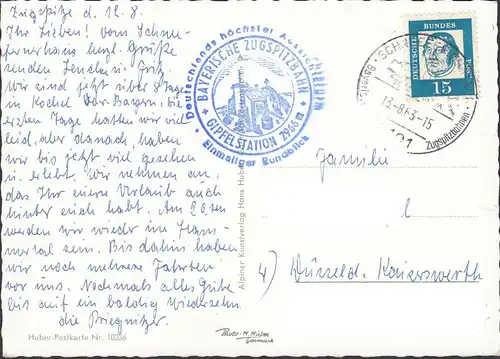 Zugspitze d. 12.8.
Ihr Lieben! Vom Schnee-
fernerhaus herzl. Grüße
senden Lenchen u. Fritz.
Wir sind jetzt über 8 Tage
in Kochel Ober-Bayern, die
ersten Tage hatten wir viel
Leid, aber danach, haben
wir bis jetzt viel gesehen
u. erlebt. Wir nehmen an,
das Ihr eure Urlaub auch
hinter euch habt. Am 20.
werden wir wieder im
sein. Bis dahin haben
wir noch mehrere Fahrten
vor uns. Nochmals alles Gute
bis auf ein baldig Wiedersehn
die
Huber-Postkarte Nr. 10336
Deutschlands höchster Aussichtsturm
BAYERISCHE ZUGSPITZBAHN
GIPFELSTATION 2966 m
Einmaliger Rundblick
Alpiner Kunstverlag Hans Huber
DEUTSCHE BUNDESPOST
15
13-8.63-15
Zugspitzbahnen
Familie
4) Düsseld. Kaiserswerth
Photo-H. Huber
Garmisch